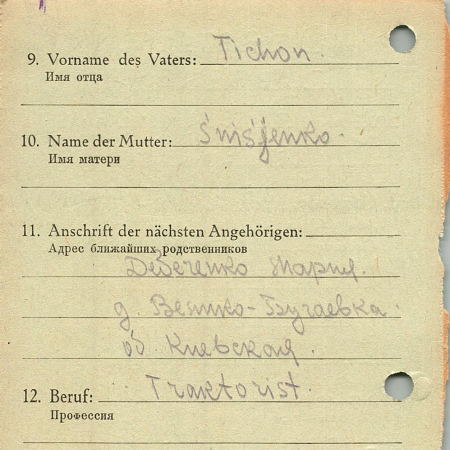 9. Vorname des Vaters: Tichon.
Имя отца
10. Name der Mutter: Śniśjenko.
Имя матери
11. Anschrift der nächsten Angehörigen:
Адрес ближайших родственников
Дебеченко Мария.
д. Велико-Бугаевка.
об. Киевская.
12. Beruf: Traktorist.
Профессия